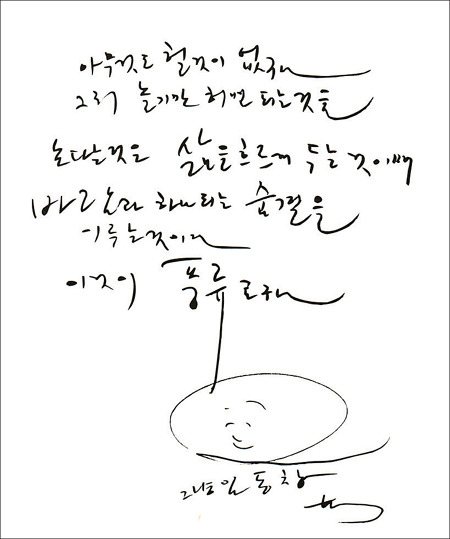 아무것도 할것이 없구나
그저 놀기만 하면 되는것을
논다는것은 삶을흐르게 두는것이며
바로 논다 하나되는 숨결을
이루는것이니
이것이 풍류로구나